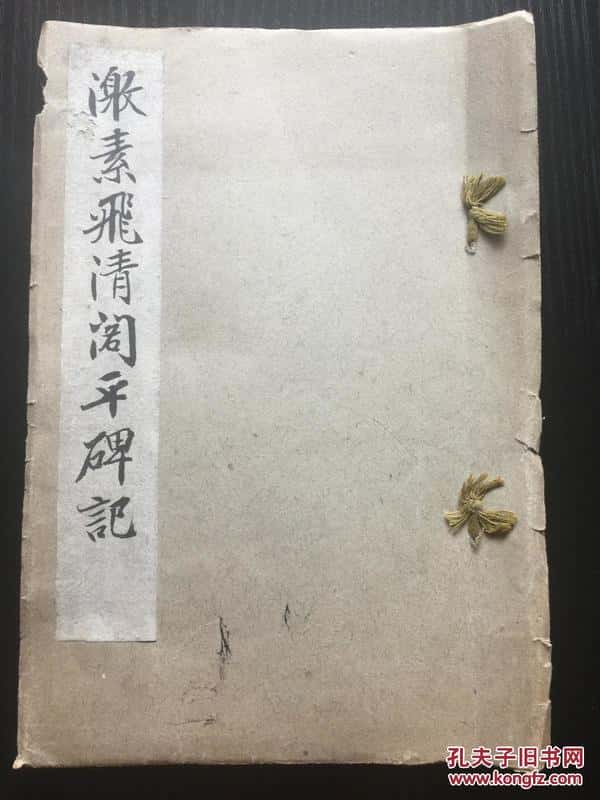 激素飛清閣平碑記
孔夫子旧书网
www.kongfz.com